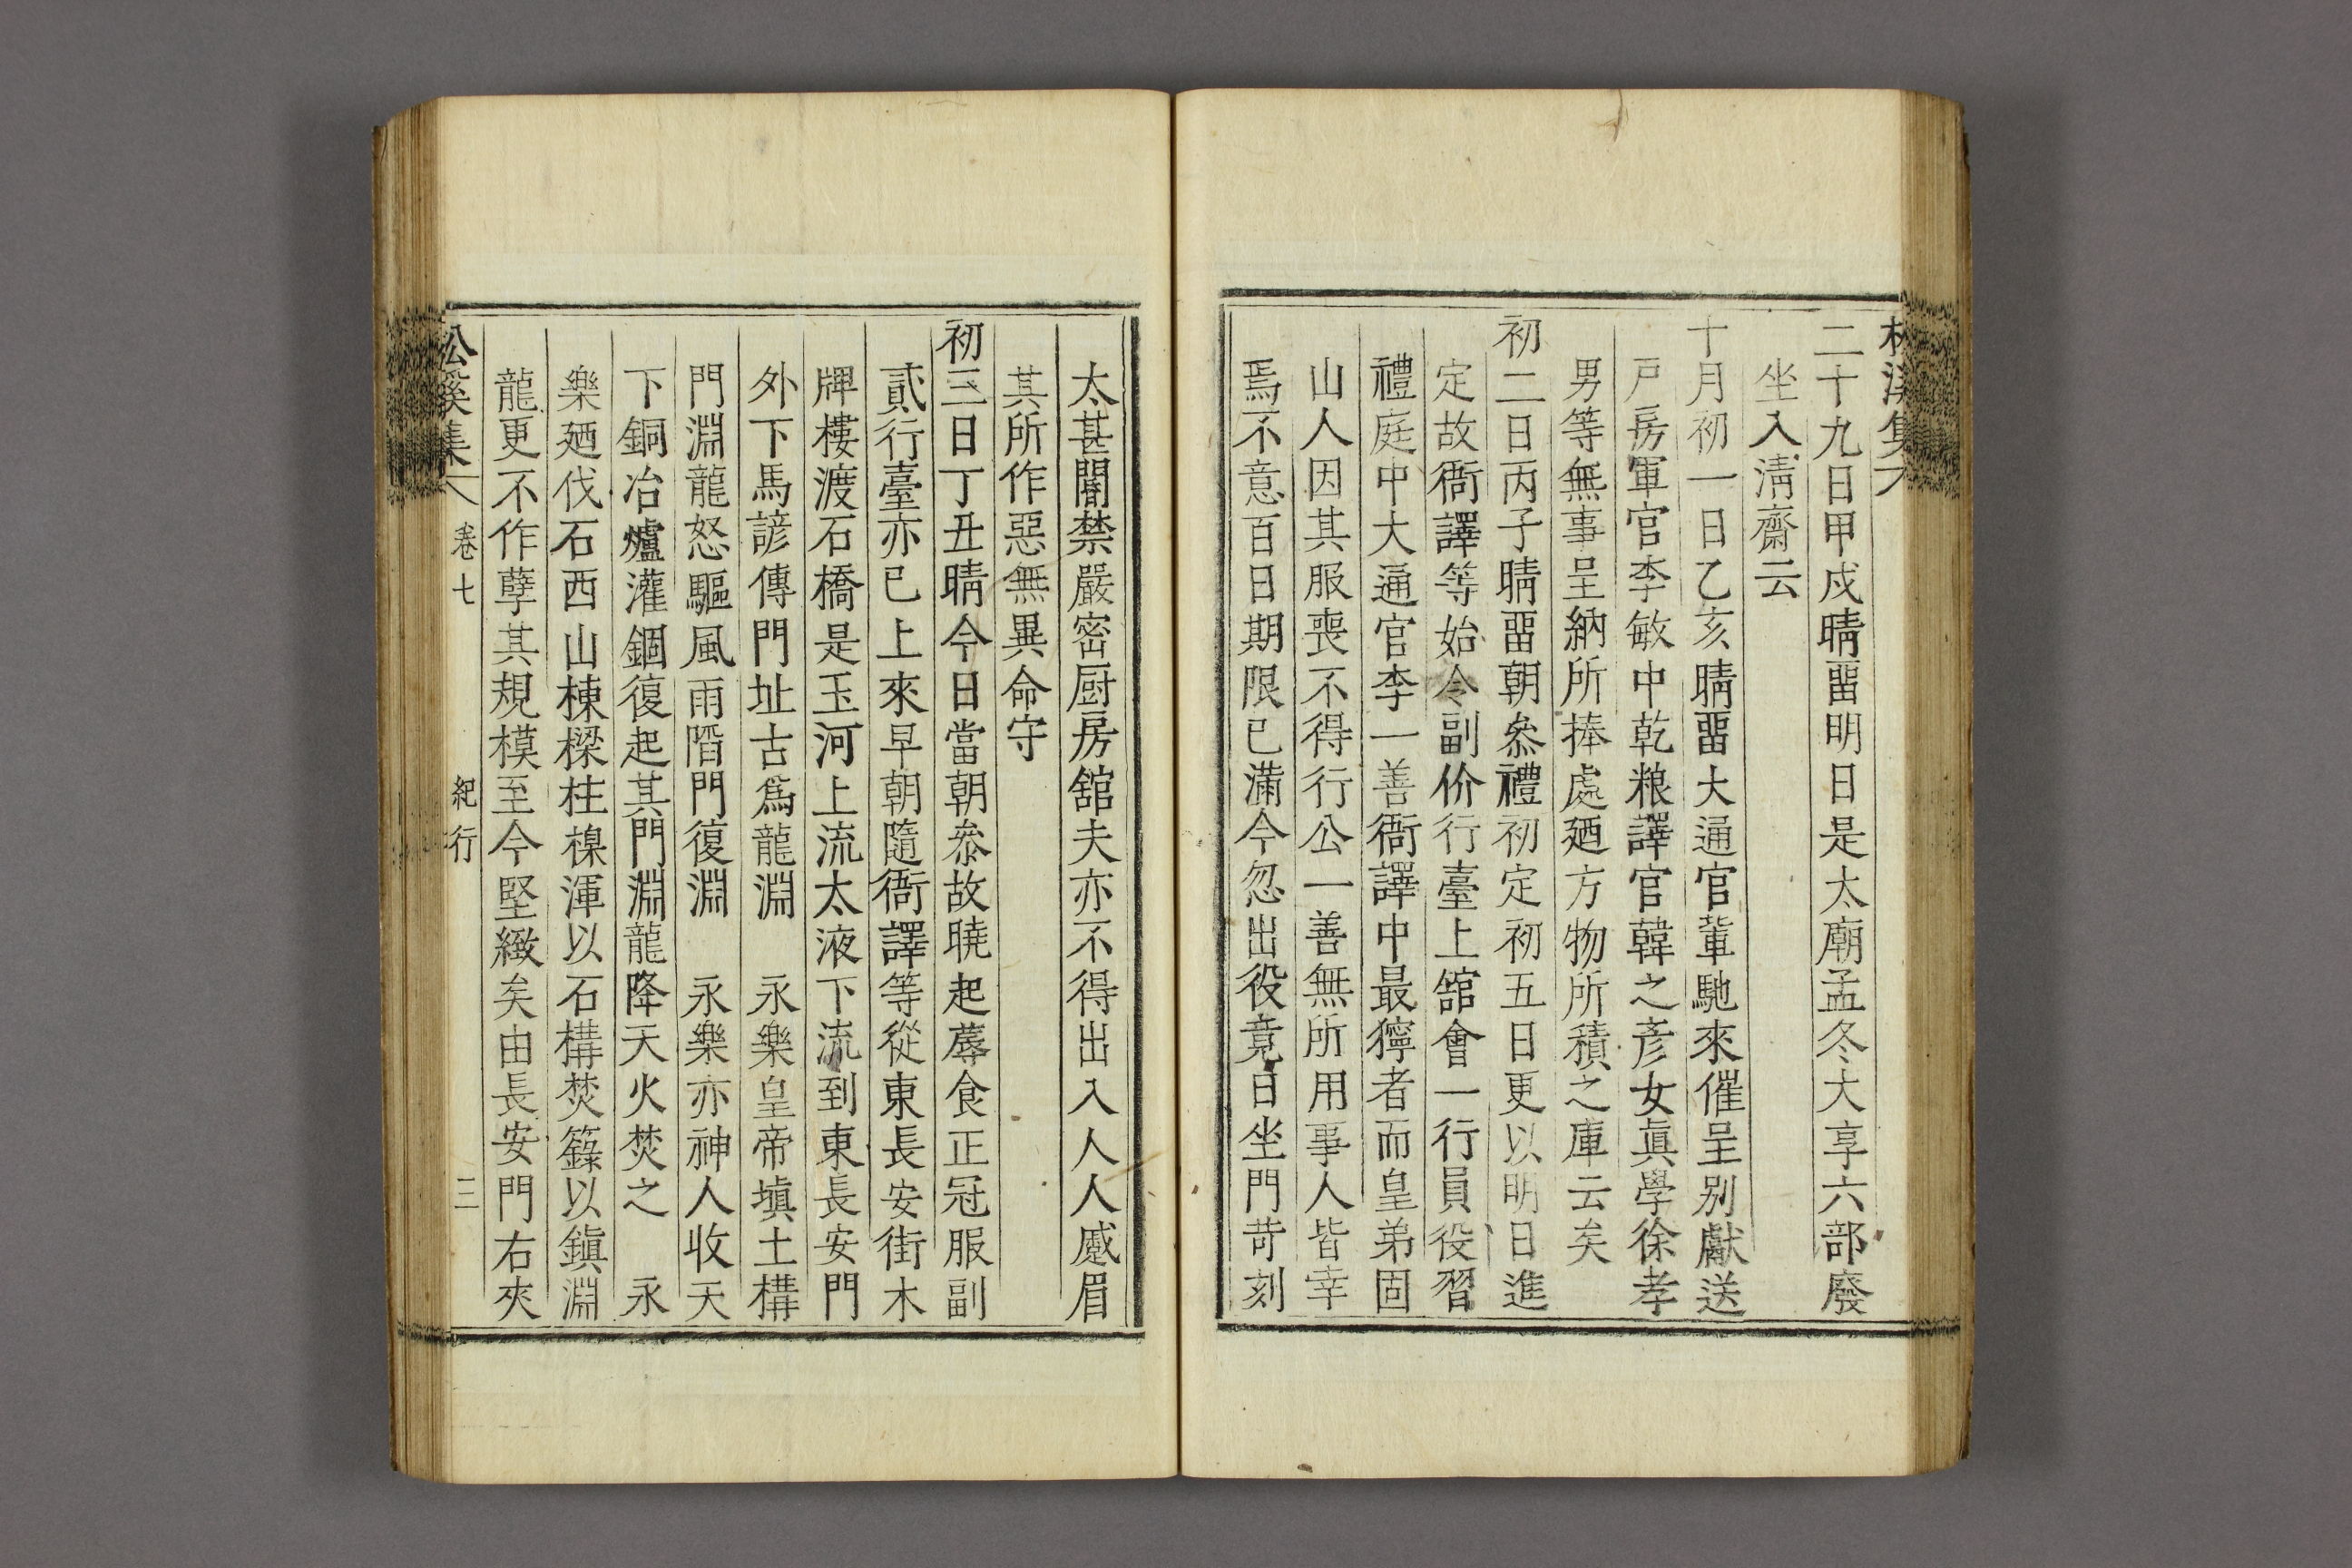 二十九日甲戌晴畱明日是太廟孟冬大享六部廢
坐入淸齋云
十月初一日乙亥晴畱大通官輩馳來催呈別獻送
戶房軍官李敏中乾粮譯官韓之彥女眞學徐孝
男等無事呈納所捧處廼方物所積之庫云矣
初二日丙子晴畱朝叅禮初定初五日更以明日進
定故衙譯等始令副价行臺上舘會一行員役習
禮庭中大通官李一善衙譯中最獰者而皇弟固
山人因其服喪不得行公一善無所用事人皆幸
焉不意百日期限已滿今忽出役竟日坐門苛刻
太甚閽禁嚴密厨房舘夫亦不得出入人人慼眉
其所作惡無異命守
初三日丁丑晴今日當朝叅故曉起蓐食正冠服副
貳行臺亦已上來早朝隨衙譯等從東長安街木
牌樓渡石橋是玉河上流太液下流到東長安門
外下馬諺傳門址古爲龍淵　永樂皇帝塡土構
門淵龍怒驅風雨陷門復淵　永樂亦神人收天
下銅冶爐灌錮復起其門淵龍降天火焚之　永
樂廼伐石西山棟樑柱㮰渾以石構焚籙以鎭淵
龍更不作孽其規模至今堅緻矣由長安門右夾
松溪集 卷七 紀行 三